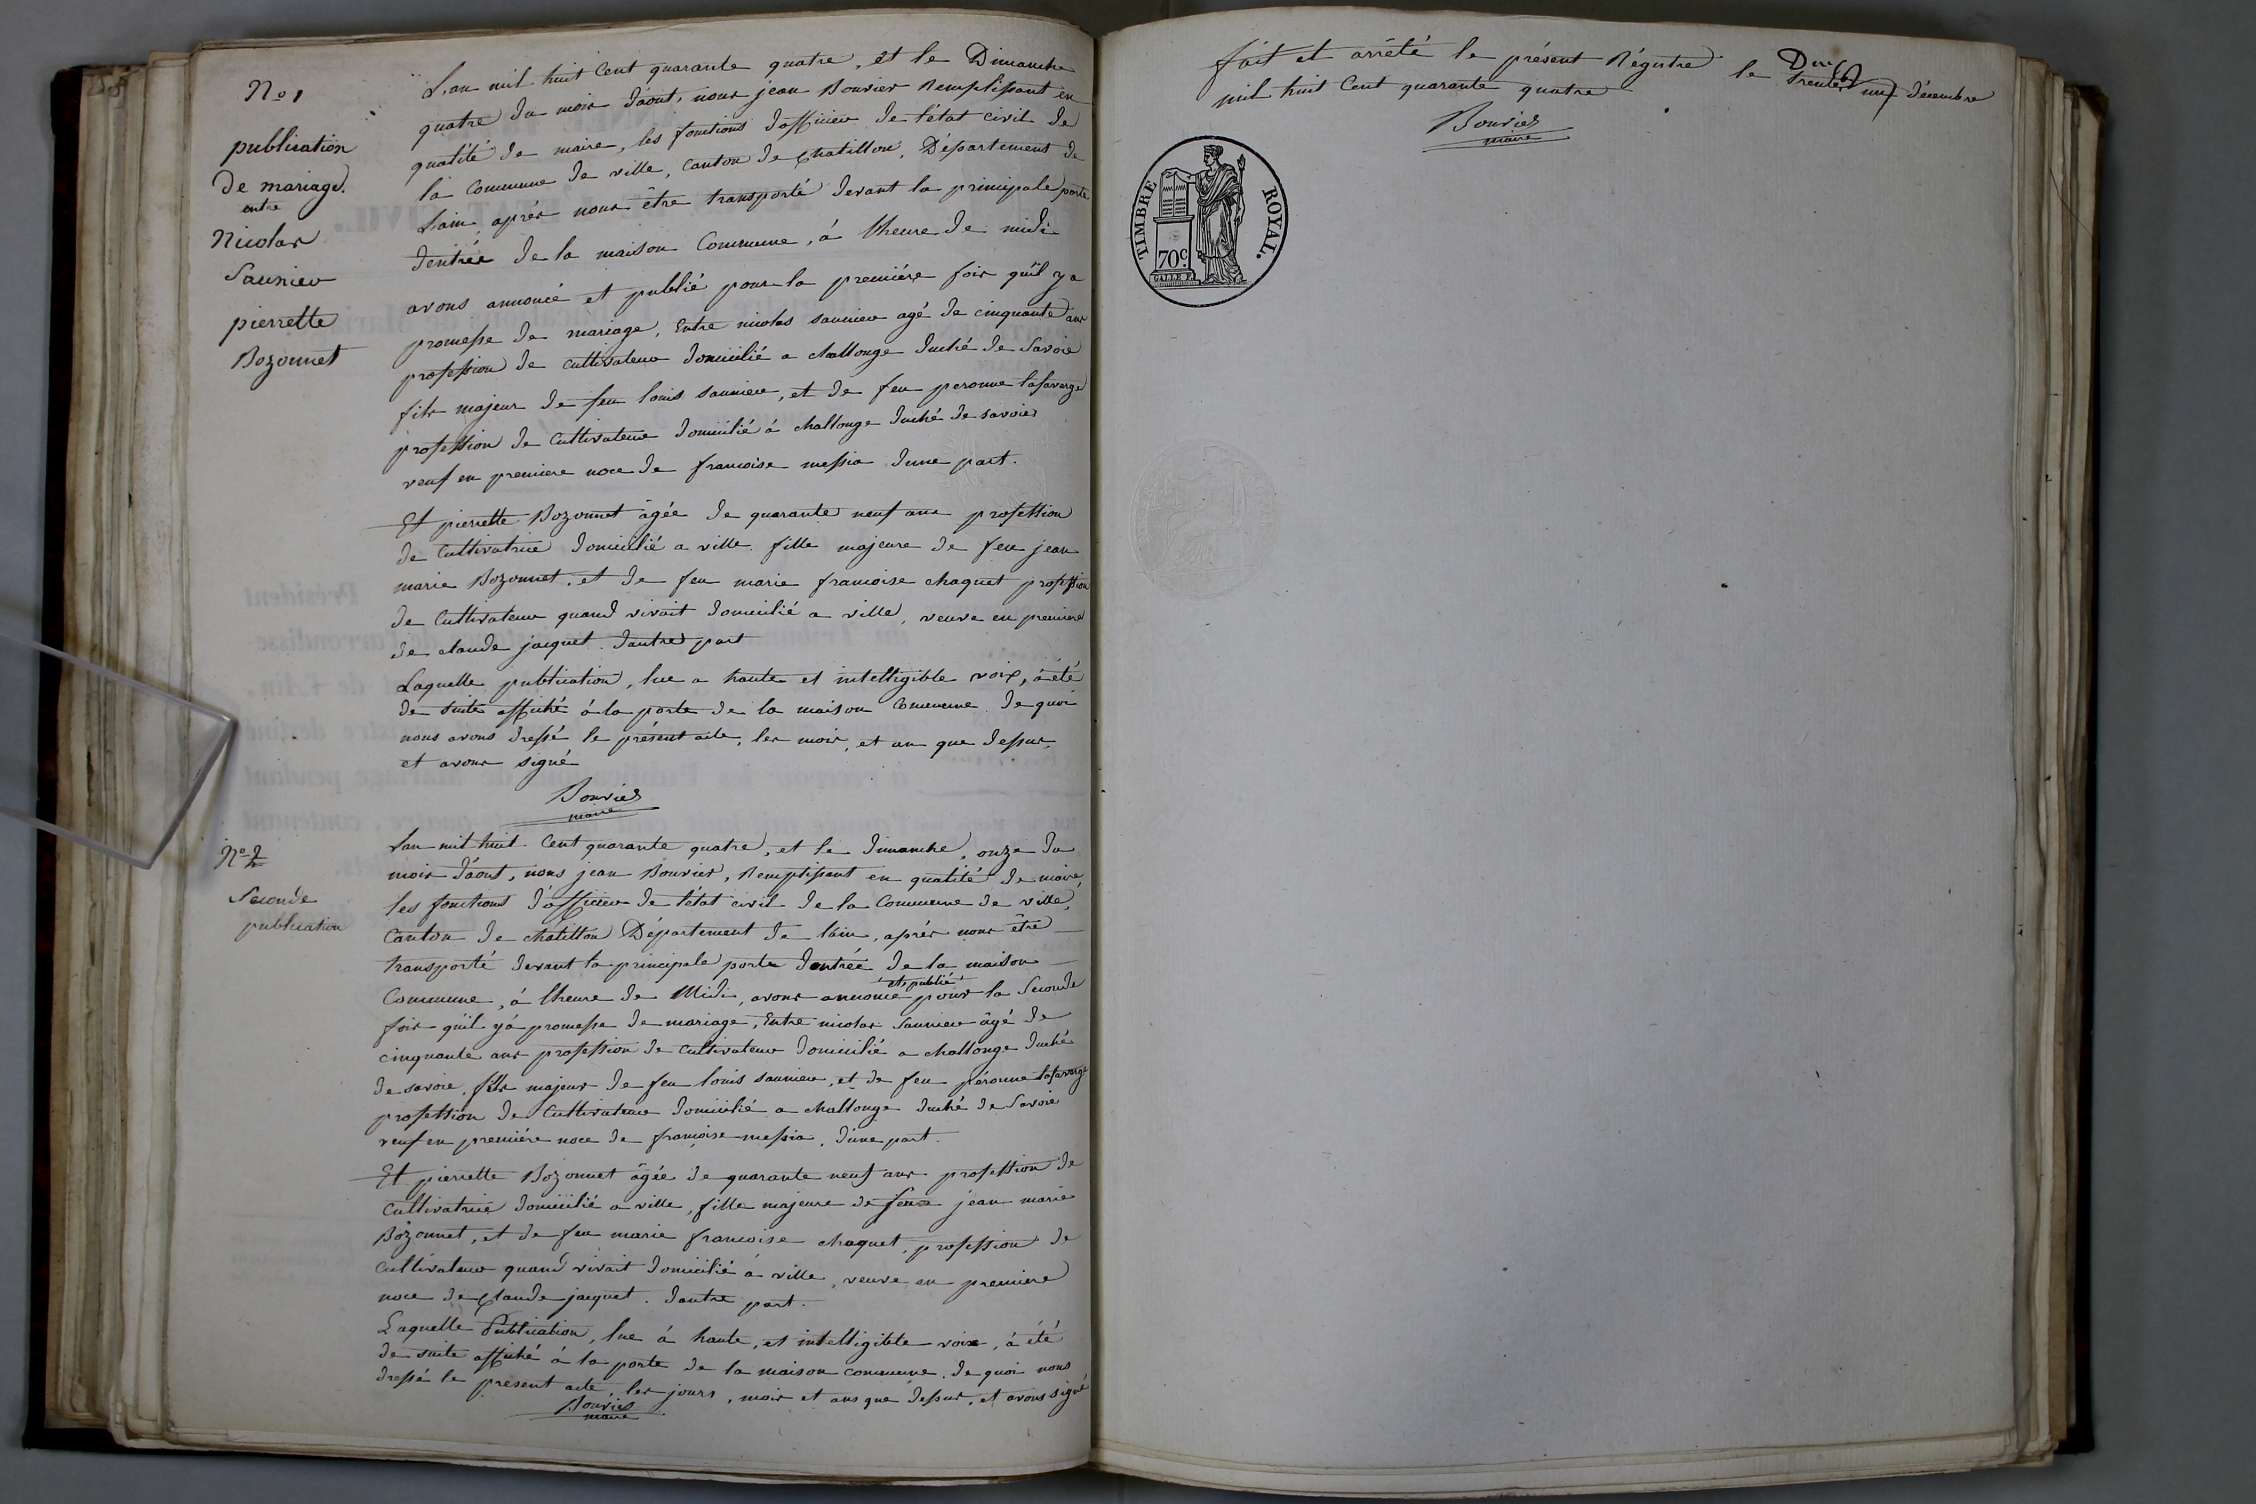 No 1
publication
de mariage
entre
Nicolas
Saunier
pierrette
Bozonnet
L'an mil huit Cent quarante quatre, et le Dimanche
quatre du mois d'août, nous jean Bouvier Remplissant en
qualité de maire, les fonctions d'officier de l'état civil de
la Commune de ville, canton de chatillon, Département de
L'ain, après nous être transporté devant la principale porte
d'entrée de la maison Commune, à l'heure de midi
avons annoncé et publié pour la première fois qu'il y a
promesse de mariage, Entre nicolas saunier agé de cinquante ans
profession de cultivateur domicilié a challonge duché de Savoie
fils majeur de feu louis saunier, et de feu peronne lafavarge
profession de Cultivateur domicilié à challonge duché de savoie
veuf en premiere noce de francoise messia d'une part.
Et pierrette Bozonnet âgée de quarante neuf ans profession
de Cultivatrice domicilié a ville fille majeure de feu jean
marie Bozonnet, et de feu marie francoise chaquet profession
de Cultivateur quand vivait domicilié a ville, veuve en premiere
de claude jacquet d'autre part
Laquelle publication, lue a haute et intelligible voix, a été
de suite affiché à la porte de la maison Commune. de quoi
nous avons dressé le présent acte, les mois, et an que dessus,
et avons signé
Bouvier
maire
No 2
Seconde
publication
L'an mil huit Cent quarante quatre, et le dimanche, onze du
mois d'août, nous jean Bouvier, Remplissant en qualité de maire
les fonctions d'officier de l'état civil de la Commune de ville,
Canton de chatillon Département de l'ain, après nous être
transporté devant la principale porte d'entrée de la maison
et publié
Commune, à l'heure de Midi, avons annoncé pour la Seconde
fois qu'il y a promesse de mariage, Entre nicolas Saunier âgé de
cinquante ans profession de cultivateur domicilié a challonge duché
de savoie, fils majeur de feu louis saunier, et de feu péronne lafavarge
profession de Cultivateur domicilié a challonge duché de Savoie
veuf en première noce de françoise messia, d'une part.
Et pierrette Bozonnet âgée de quarante neuf ans profession de
Cultivatrice domicilié a ville, fille majeure de feu jean marie
Bozonnet, et de feu marie francoise chaquet, profession de
Cultivateur quand vivait domicilié à ville, veuve en premiere
noce de Claude jacquet. d'autre part.
Laquelle Publication, lue à haute, et intelligible voix, à été
de suite affiché à la porte de la maison commune. de quoi nous
dressé le présent acte, les jours, mois et ans que dessus, et avons signé
Bouvier
maire
fait et arrêté le présent Régistre le trente un décembre
mil huit Cent quarante quatre
Bouvier
maire
TIMBRE ROYAL.
70 c.